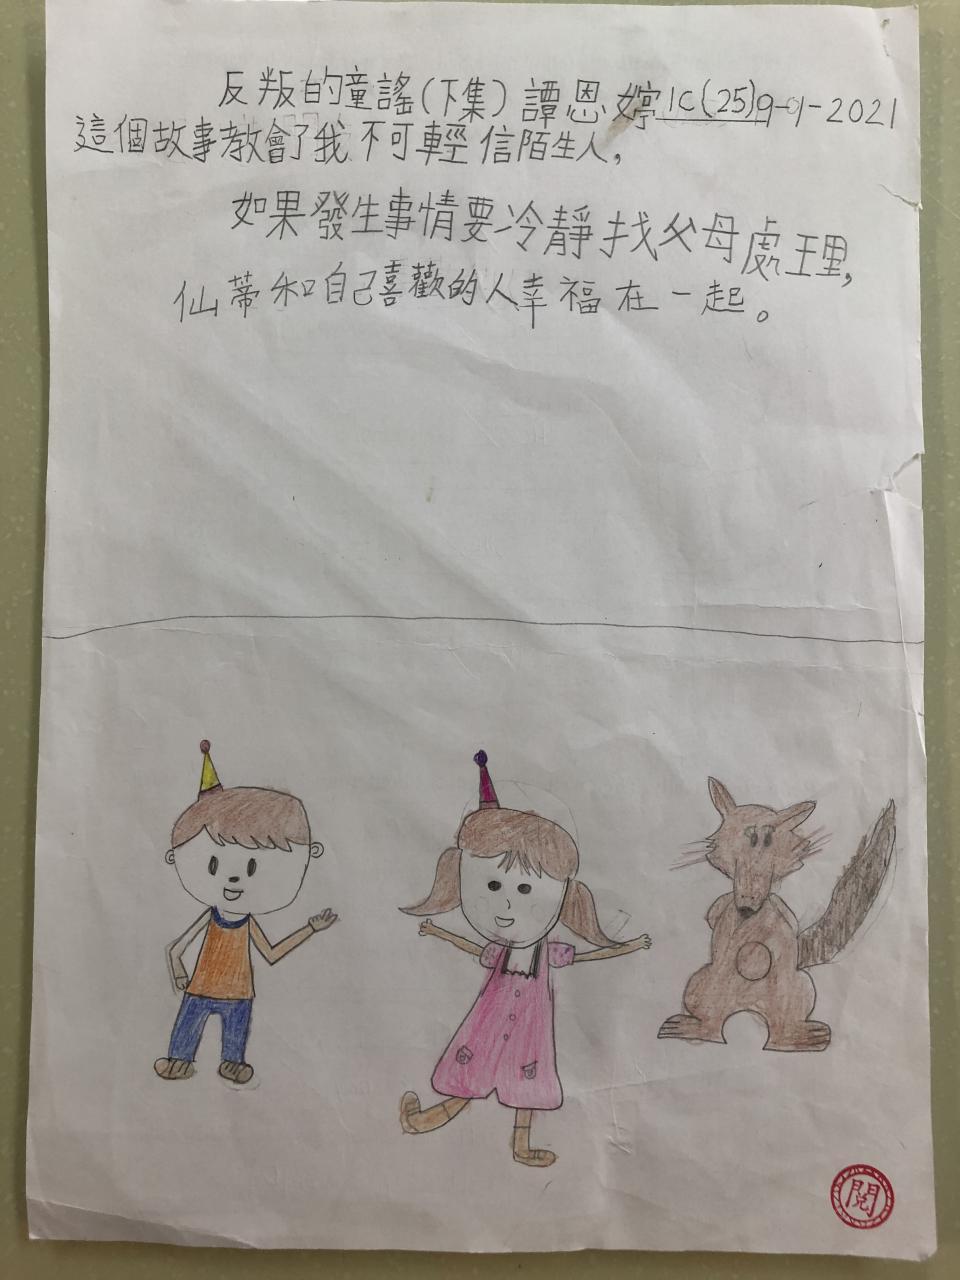 反叛的童謠(下集) 譚恩婷 1C(25) 9-9-2021
這個故事教會了我不可輕信陌生人,
如果發生事情要冷靜找父母處理,
仙蒂和自己喜歡的人幸福在一起。
閱